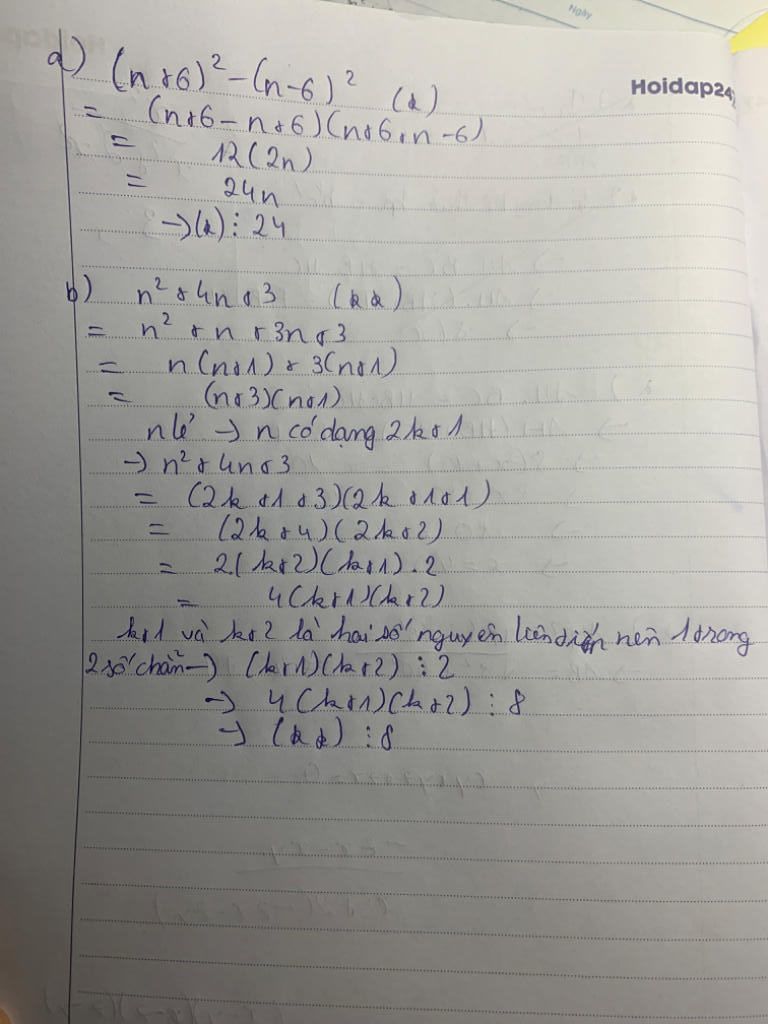 Ngày
Hoidap247
a) (n+6)² - (n-6)² (*)
= (n+6-n+6)(n+6+n-6)
= 12(2n)
= 24n
→(*)⋮24
b) n²+4n+3 (**)
= n²+n+3n+3
= n(n+1)+3(n+1)
= (n+3)(n+1)
n lẻ → n có dạng 2k+1
→ n²+4n+3
= (2k+1+3)(2k+1+1)
= (2k+4)(2k+2)
= 2.(k+2)(k+1).2
= 4(k+1)(k+2)
k+1 và k+2 là hai số nguyên liên tiếp nên 1 trong
2 số chẵn → (k+1)(k+2)⋮2
→ 4(k+1)(k+2)⋮8
→ (**)⋮8